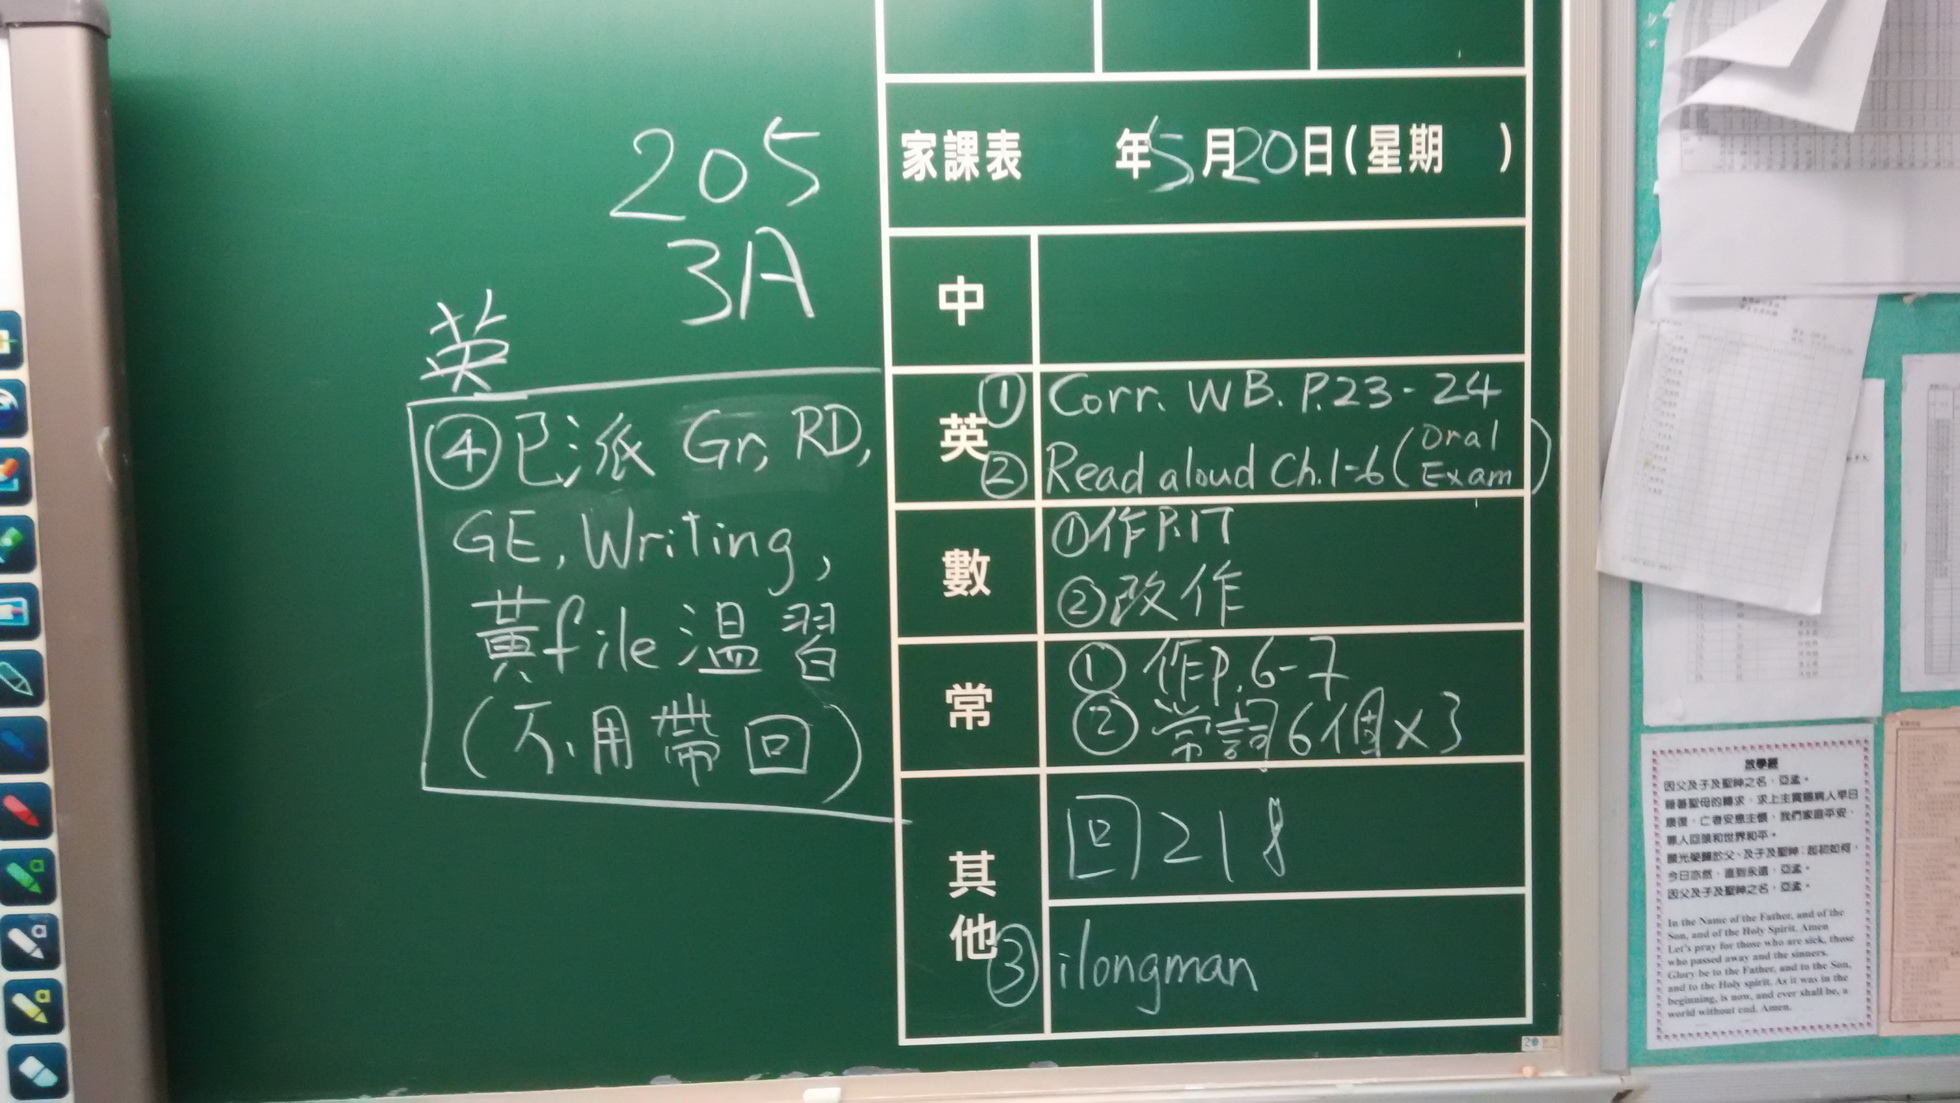 205
3A
英
④已派 Gr, RD,
GE, Writing,
黃file溫習
(不用帶回)
家課表 年5月20日(星期 )
中
英
① Corr. WB. P.23-24
② Read aloud Ch.1-6 (Oral Exam)
數
①作P.17
②改作
常
① 作P.6-7
② 常詞6個×3
其他
回 218
③ ilongman
放學經
因父及子及聖神之名，亞孟。
藉著聖母的轉求，求上主賞賜病人早日
康復，亡者安息主懷，我們家庭平安，
罪人回頭和世界和平。
願光榮歸於父、及子及聖神；起初如何，
今日亦然，直到永遠，亞孟。
因父及子及聖神之名，亞孟。
In the Name of the Father, and of the
Son, and of the Holy Spirit. Amen
Let's pray for those who are sick, those
who passed away and the sinners.
Glory be to the Father, and to the Son,
and to the Holy spirit. As it was in the
beginning, is now, and ever shall be, a
world without end. Amen.